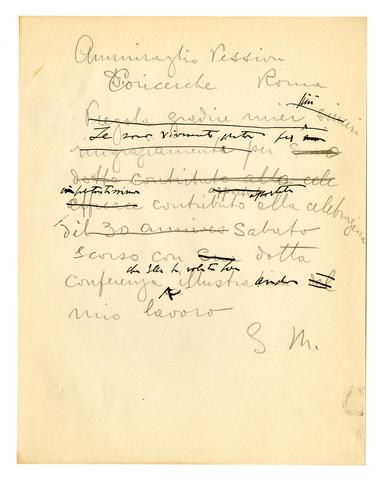 Ammiraglio Pession
Concerche Roma
Prego la gradire miei più sinceri
Le sono vivamente grato per
ringraziamenti per Sua
dotta contributo alla cele
importantissimo apportato
efficace contributo alla celebrazione
del 30 annivers Sabato
scorso con Sua dotta
che Ella ha voluto fare
Conferenza illustrando il
mio lavoro
G M.